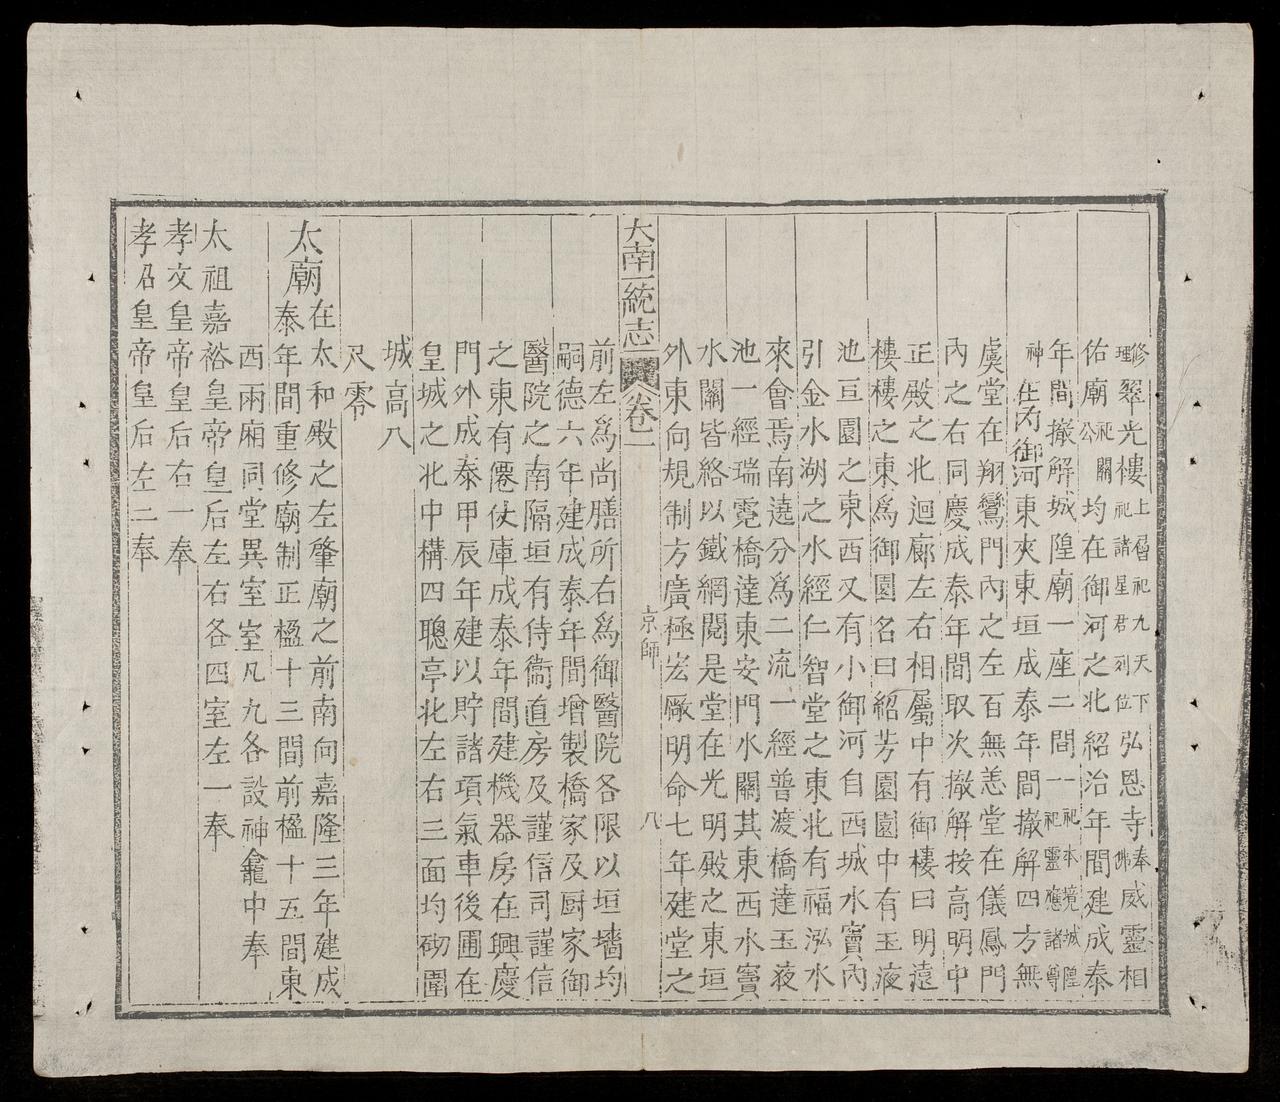 修理翠光樓上層祀九天下祀諸星君列位弘恩寺奉佛威靈相
佑廟祀關公均在御河之北紹治年間建成泰
年間撤解城隍廟一座二間一祀本境城隍一祀靈應諸尊
神在內御河東夾東垣成泰年間撤解四方無
虞堂在翔鸞門內之左百無恙堂在儀鳳門
內之右同慶成泰年間取次撤解按高明中
正殿之北迴廊左右相屬中有御樓曰明遠
樓樓之東爲御園名曰紹芳園園中有玉液
池亘園之東西又有小御河自西城水竇內
引金水湖之水經仁智堂之東北有福泓水
來會焉南遶分爲二流一經普渡橋達玉液
池一經瑞霓橋達東安門水關其東西水竇
水關皆絡以鐵網閱是堂在光明殿之東垣
外東向規制方廣極宏厰明命七年建堂之
大南一統志 卷一 京師 八
前左爲尚膳所右爲御醫院各限以垣墻均
嗣德六年建成泰年間增製橋家及厨家御
醫院之南隔垣有侍衞直房及謹信司謹信
之東有僊仗庫成泰年間建機器房在興慶
門外成泰甲辰年建以貯諸項氣車後圃在
皇城之北中構四聰亭北左右三面均砌圍
城高八
尺零
太廟在太和殿之左肇廟之前南向嘉隆三年建成
泰年間重修廟制正楹十三間前楹十五間東
西兩廂同堂異室室凡九各設神龕中奉
太祖嘉裕皇帝皇后左右各四室左一奉
孝文皇帝皇后右一奉
孝昭皇帝皇后左二奉